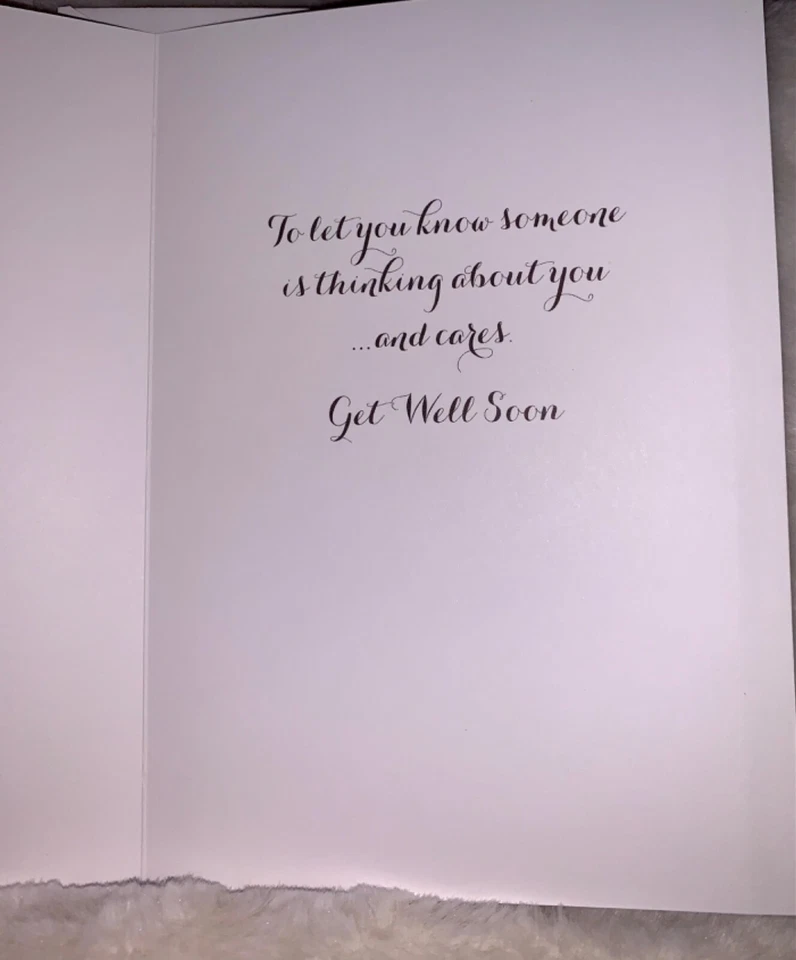 To let you know someone
is thinking about you
...and cares.
Get Well Soon